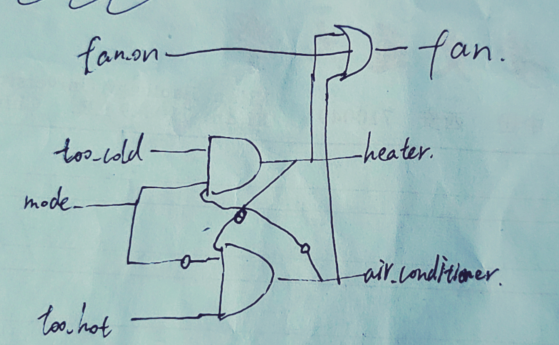 fan_on
fan.
too_cold
heater.
mode
air_conditioner.
too_hot